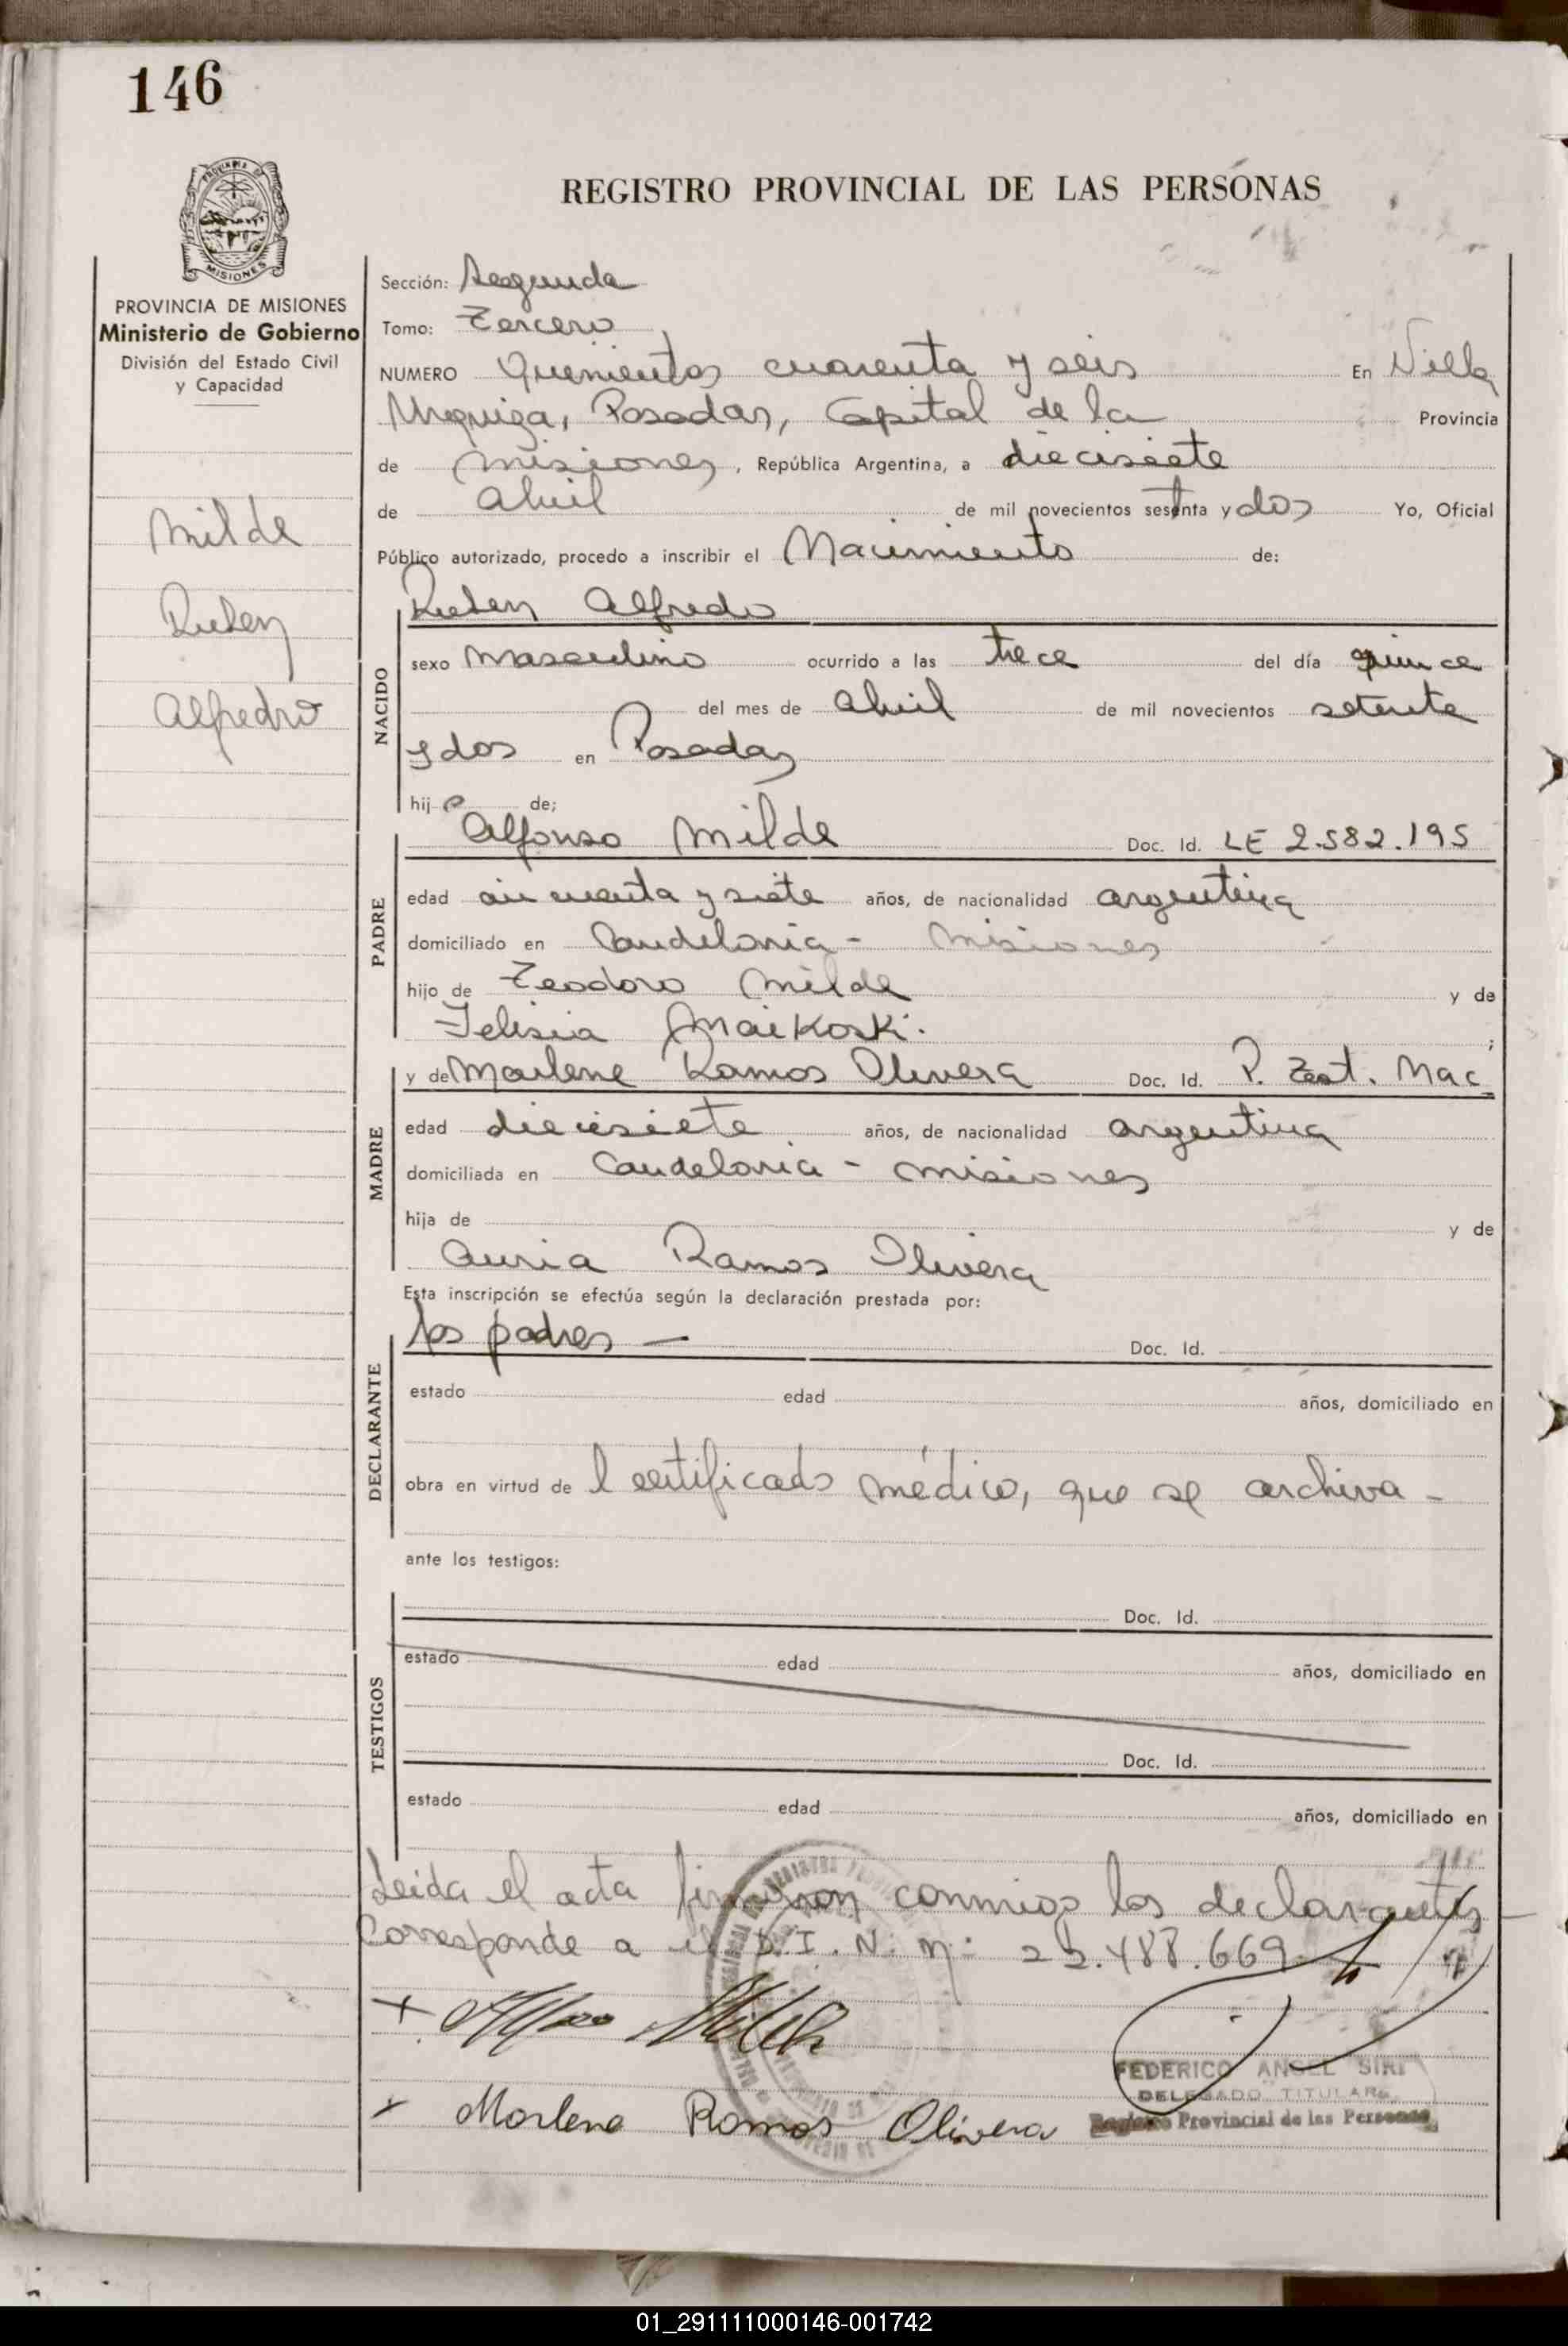 146
REGISTRO PROVINCIAL DE LAS PERSONAS
PROVINCIA DE
MISIONES
PROVINCIA DE MISIONES
Ministerio de Gobierno
División del Estado Civil
y Capacidad
Milde
Ruben
Alfredo
Sección: Segunda
Tomo: Tercero
NUMERO Quinientos cuarenta y seis En Villa
Urquiza, Posadas, Capital de la Provincia
de Misiones, República Argentina, a diecisiete
de abril de mil novecientos setenta y dos Yo, Oficial
Público autorizado, procedo a inscribir el Nacimiento de:
NACIDO
Ruben Alfredo
sexo Masculino ocurrido a las trece del día quince
del mes de abril de mil novecientos setenta
y dos en Posadas
hijo de;
PADRE
Alfonso Milde Doc. Id. LE 2.582.195
edad cincuenta y siete años, de nacionalidad argentina
domiciliado en Candelaria - Misiones
hijo de Teodoro Milde y de
Maikoski.
MADRE
y de Marlene Ramos Olivera Doc. Id. P. Test. Nac
edad diecisiete años, de nacionalidad argentina
domiciliada en Candelaria - Misiones
hija de y de
Auria Ramos Olivera
Esta inscripción se efectúa según la declaración prestada por:
DECLARANTE
los padres — Doc. Id.
estado edad años, domiciliado en
obra en virtud del certificado médico, que se archiva -
ante los testigos:
TESTIGOS
Doc. Id.
estado edad años, domiciliado en
Doc. Id.
estado edad años, domiciliado en
Leida el acta firmaron conmigo los declarantes
Corresponde a el D.I.N. Nº 22.488.669
x
x Marlene Ramos Olivera
FEDERICO ANGEL SIRI
DELEGADO TITULAR
Registro Provincial de las Personas
01_291111000146-001742